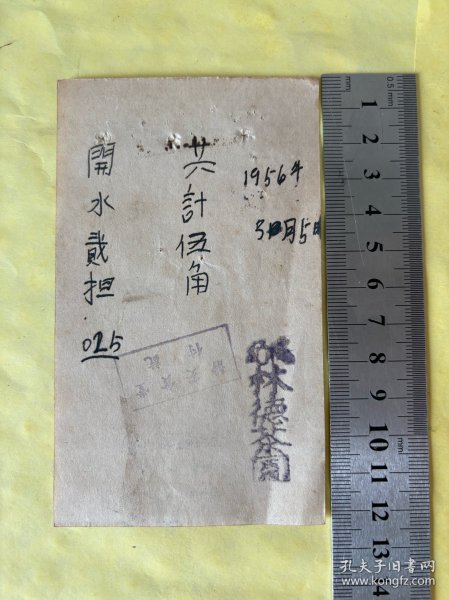 1956年
3月5日
共計伍角
開水貳担
025
林德茶園
0.5mm
1 2 3 4 5 6 7 8 9 10 11 12 13 14
孔夫子旧书网
www.kongfz.com